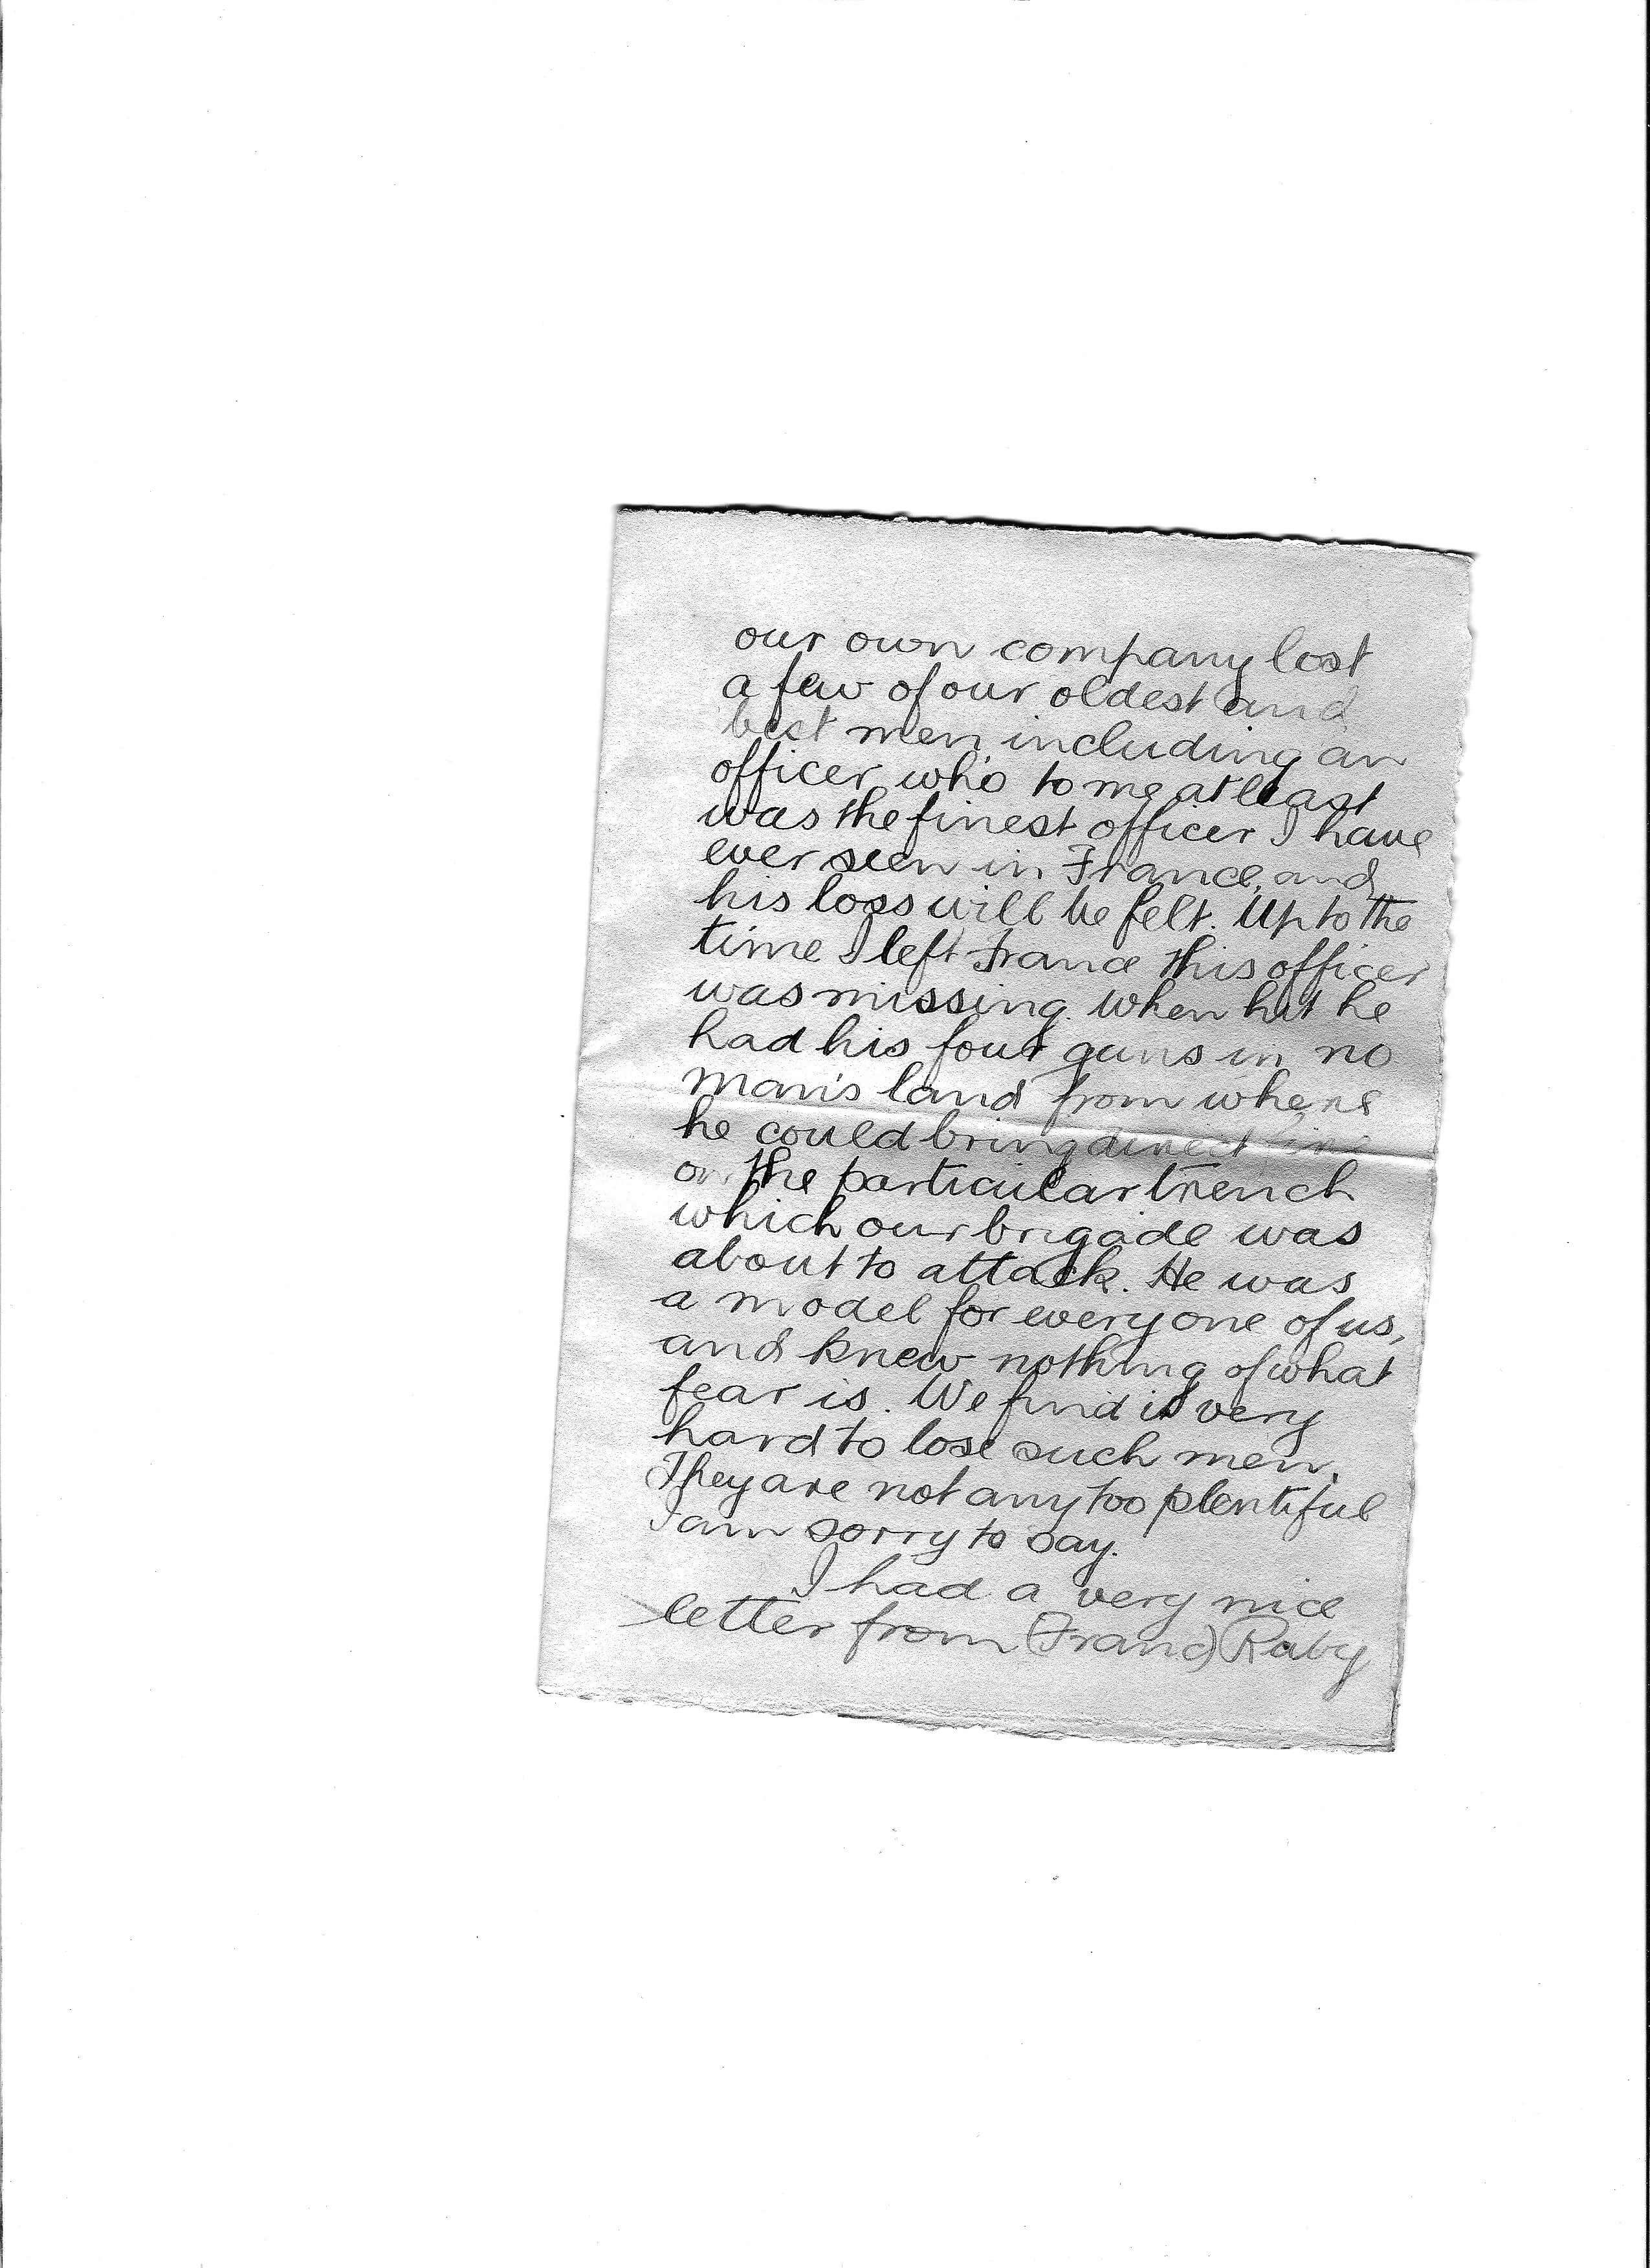 our own company lost
a few of our oldest and
best men, including an
officer, who to me at least
was the finest officer I have
ever seen in France, and
his loss will be felt. Up to the
time I left France this officer
was missing. When hit he
had his four guns in no
man's land from where
he could bring direct fire
on the particular trench
which our brigade was
about to attack. He was
a model for every one of us,
and knew nothing of what
fear is. We find it very
hard to lose such men.
They are not any too plentiful
I am sorry to say.
I had a very nice
letter from (Franc) Ruby